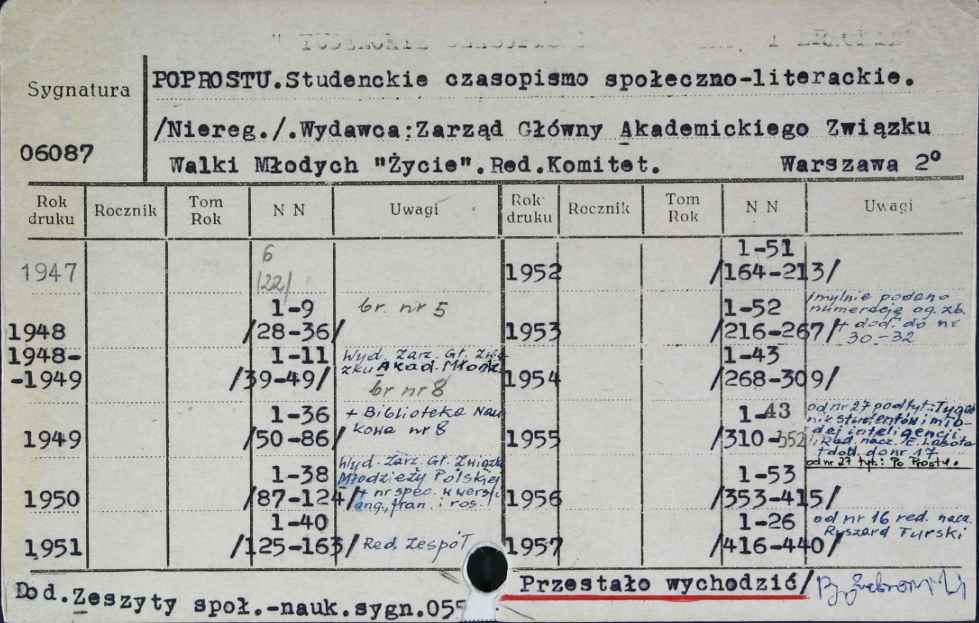 Sygnatura
06087
POPROSTU.Studenckie czasopismo społeczno-literackie.
/Niereg./.Wydawca:Zarząd Główny Akademickiego Związku
Walki Młodych "Życie".Red.Komitet. Warszawa 2°
Rok druku Rocznik Tom Rok N N Uwagi
1947 6 /22/
1948 1-9 /28-36/ br. nr 5
1948-
-1949 1-11 /39-49/ Wyd. Zarz. Gł. Zwią
zku Akad. Młodz.
br nr 8
1949 1-36 /50-86/ + Biblioteka Nau
kowa nr 8
1950 1-38 /87-124/ Wyd. Zarz. Gł. Związku
Młodzieży Polskiej
+ nr spec. w wersji
ang., fran. i ros.
1951 1-40 /125-163/ Red. Zespół
Rok druku Rocznik Tom Rok N N Uwagi
1952 1-51 /164-213/
1953 1-52 /216-267/ /mylnie podano
numerację og. zb.
+ dod. do nr
30-32
1954 1-43 /268-309/
1955 1-43 /310-352 od nr 27 podtyt.: Tygod
nik studentów i mło-
dej inteligencji
Red. nacz. E. Lasota
+ dod. do nr 17
od nr 27 tyt.: Po Prostu.
1956 1-53 /353-415/
1957 1-26 /416-440/ od nr 16 red. nacz.
Ryszard Turski
Przestało wychodzić/
Dod.Zeszyty społ.-nauk.sygn.055